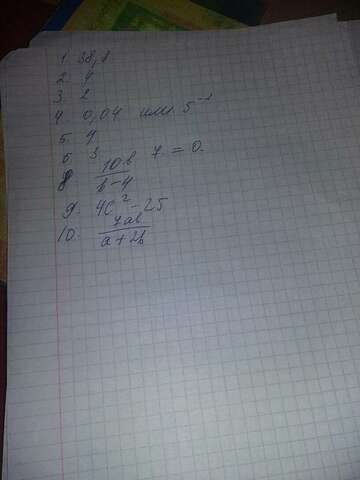 1. 38,8
2. 4
3. 2
4. 0,04 или 5⁻²
5. 4
6. 3 7 = 0.
8. 10b/(b-4)
9. 4c² - 25
10. 7ab/(a+2b)